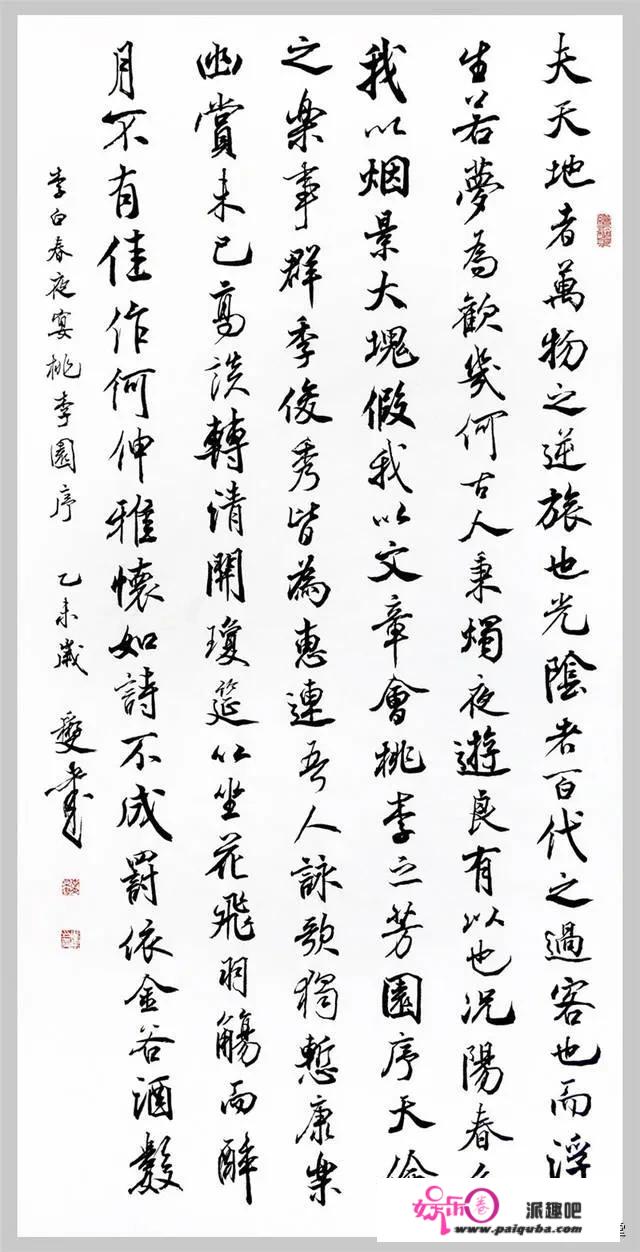 夫天地者萬物之逆旅也光陰者百代之過客也而浮
生若夢為歡幾何古人秉燭夜遊良有以也況陽春
我以烟景大塊假我以文章會桃李之芳園序天倫
之樂事群季俊秀皆為惠連吾人詠歌獨慙康樂
幽賞未已高談轉清開瓊筵以坐花飛羽觴而醉
月不有佳作何伸雅懷如詩不成罰依金谷酒數
李白春夜宴桃李園序 乙未歲
娱乐圈 派趣吧
www.paiquba.com